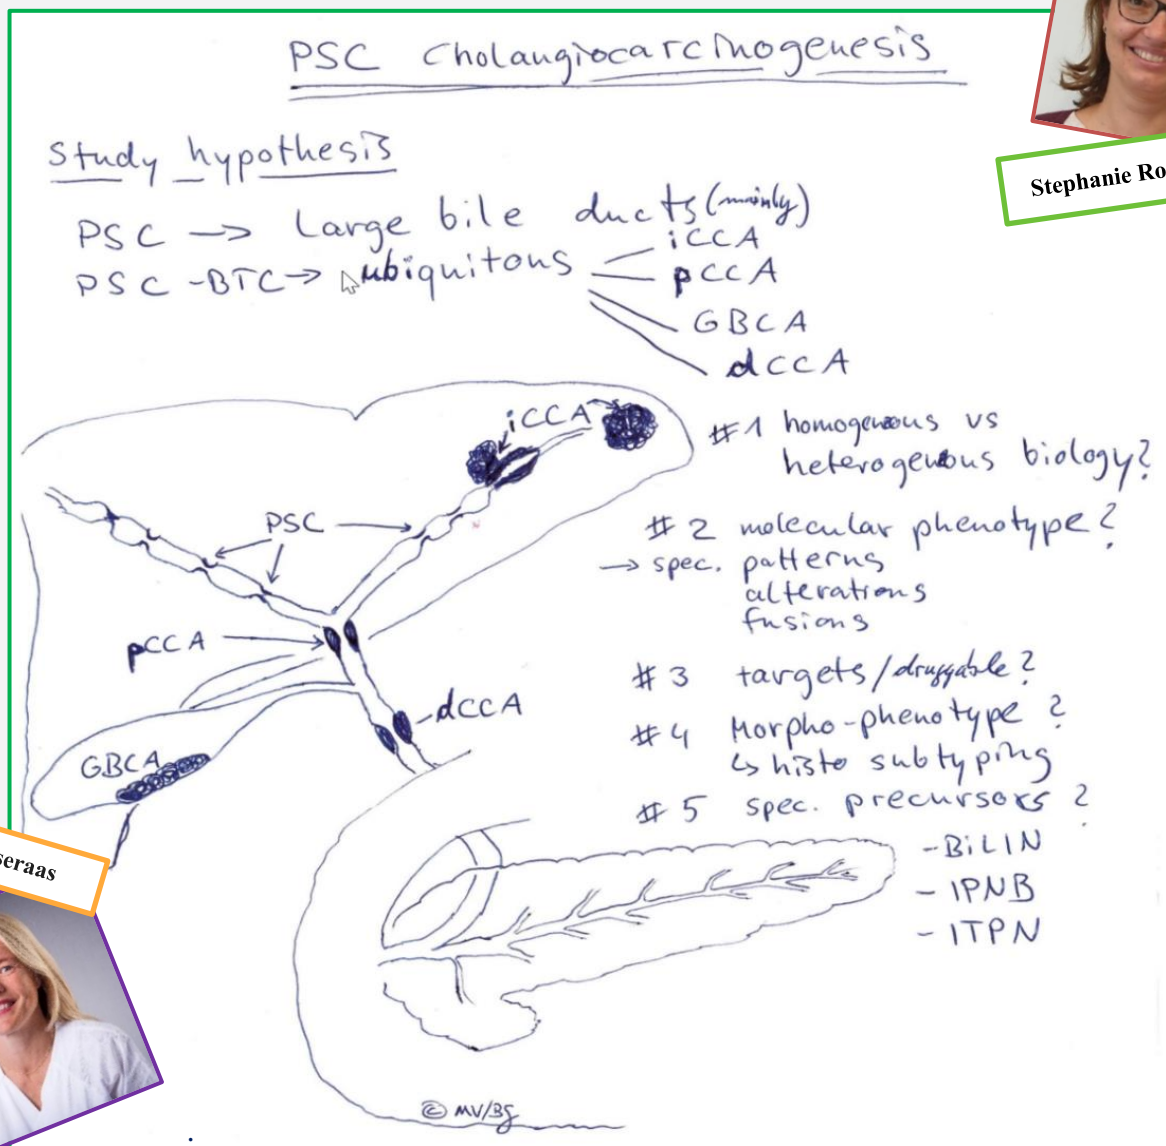 PSC Cholangiocarcinogenesis
Study hypothesis
PSC → Large bile ducts (mainly)
PSC -BTC→ ubiquitous
iCCA
pCCA
GBCA
dCCA
iCCA
PSC
pCCA
dCCA
GBCA
#1 homogenous vs
heterogenous biology?
#2 molecular phenotype?
→ spec. patterns
alterations
fusions
#3 targets/druggable?
#4 Morpho-phenotype?
↳ histo subtyping
#5 spec. precursors?
-BilIN
- IPNB
- ITPN
© MV/BG
Stephanie Ro
seraas